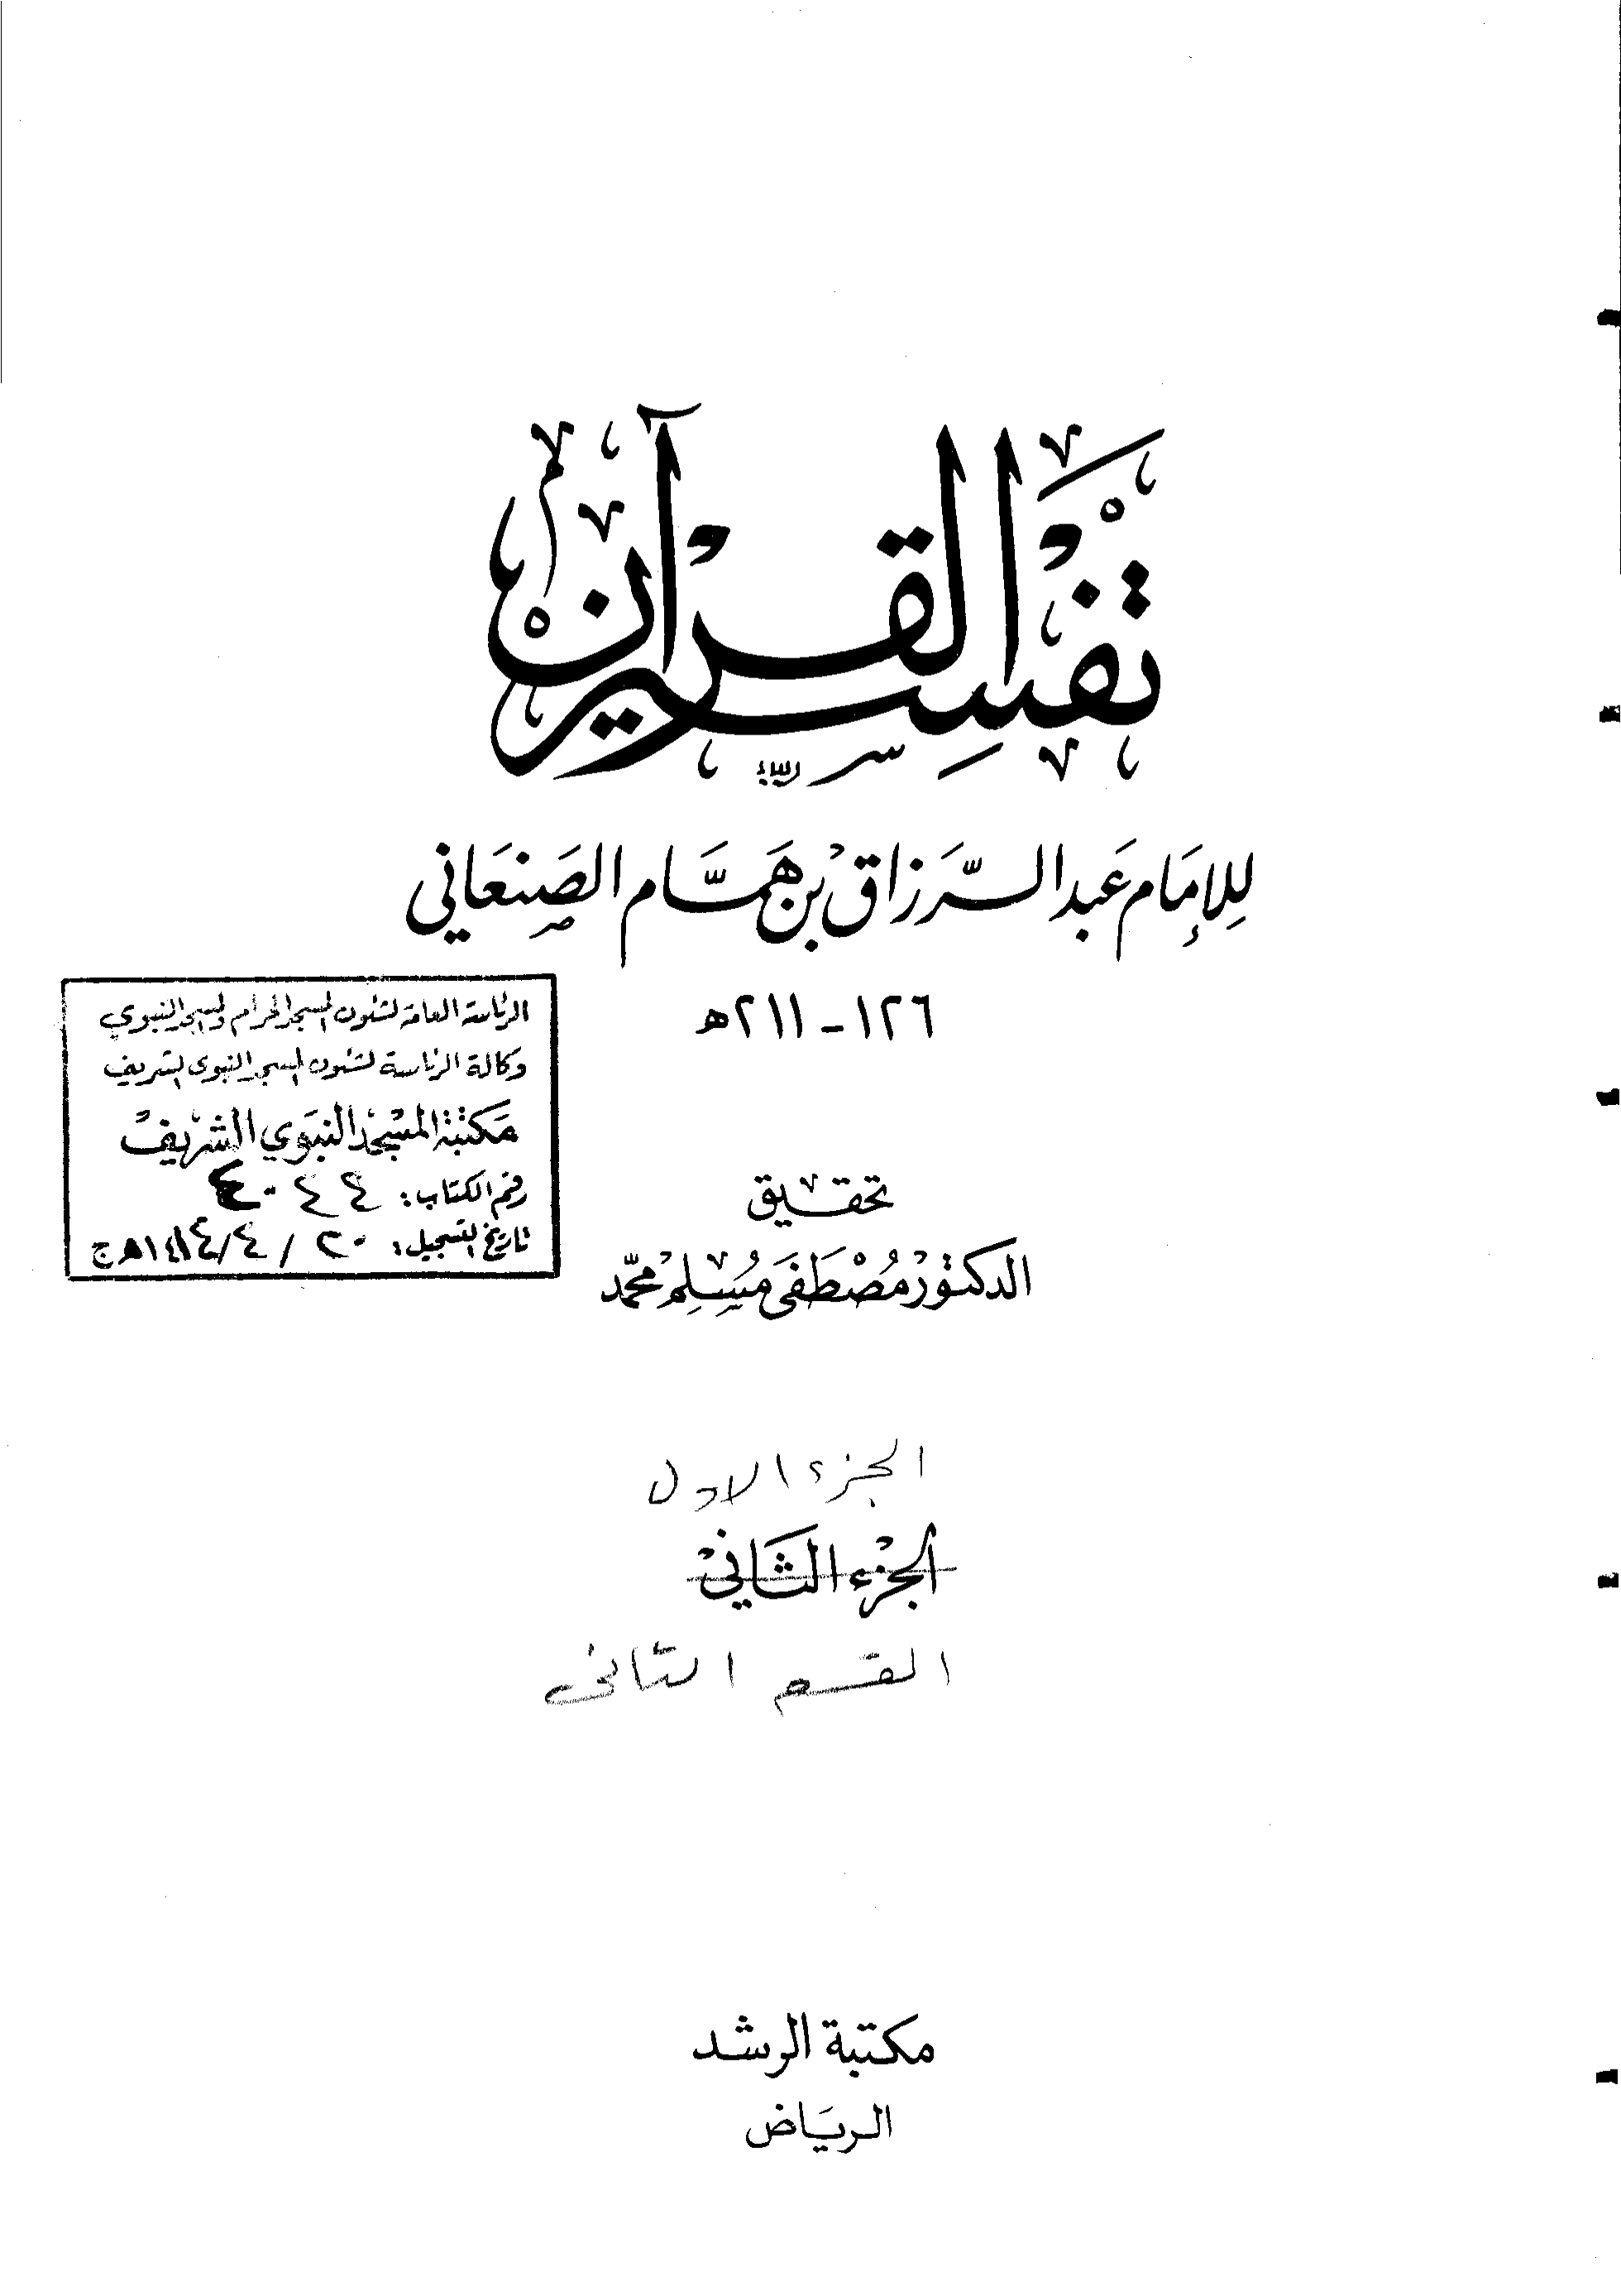 تفسير القرآن
للإمام عبد الرزاق بن همام الصنعاني
١٢٦ - ٢١١ هـ
الرئاسة العامة لشئون المسجد الحرام والمسجد النبوي
وكالة الرئاسة لشئون المسجد النبوي الشريف
مكتبة المسجد النبوي الشريف
رقم الكتاب:
تاريخ التسجيل: ٢٠ / ٤ / ١٤١٤ هـ ج
تحقيق
الدكتور مصطفى مسلم محمد
الجزء الاول
الجزء الثاني
القسم الثاني
مكتبة الرشد
الرياض